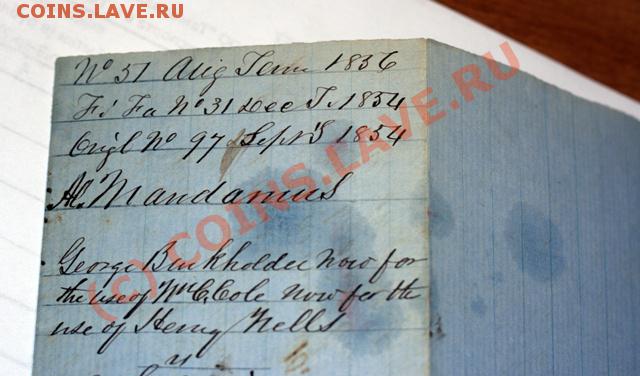 COINS.LAVE.RU
COINS.LAVE.RU
No 51 Aug Term 1856
Fi Fa No 31 Dec T. 1854
Origl No 97 Sept T 1854
Al. Mandamus
George Burkholder now for
the use of Wm C. Cole now for the
use of Henry Wells
vs
(c) COINS.LAVE.RU